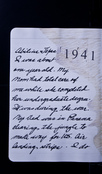 Abilene Texas
1941
I was about
one year old. My
Mom had total care of
me while she completed
her undergraduate degree.
It was during the war.
My Dad was in Panama
clearing the jungle to
make way for U.S. Air
landing strips. I do